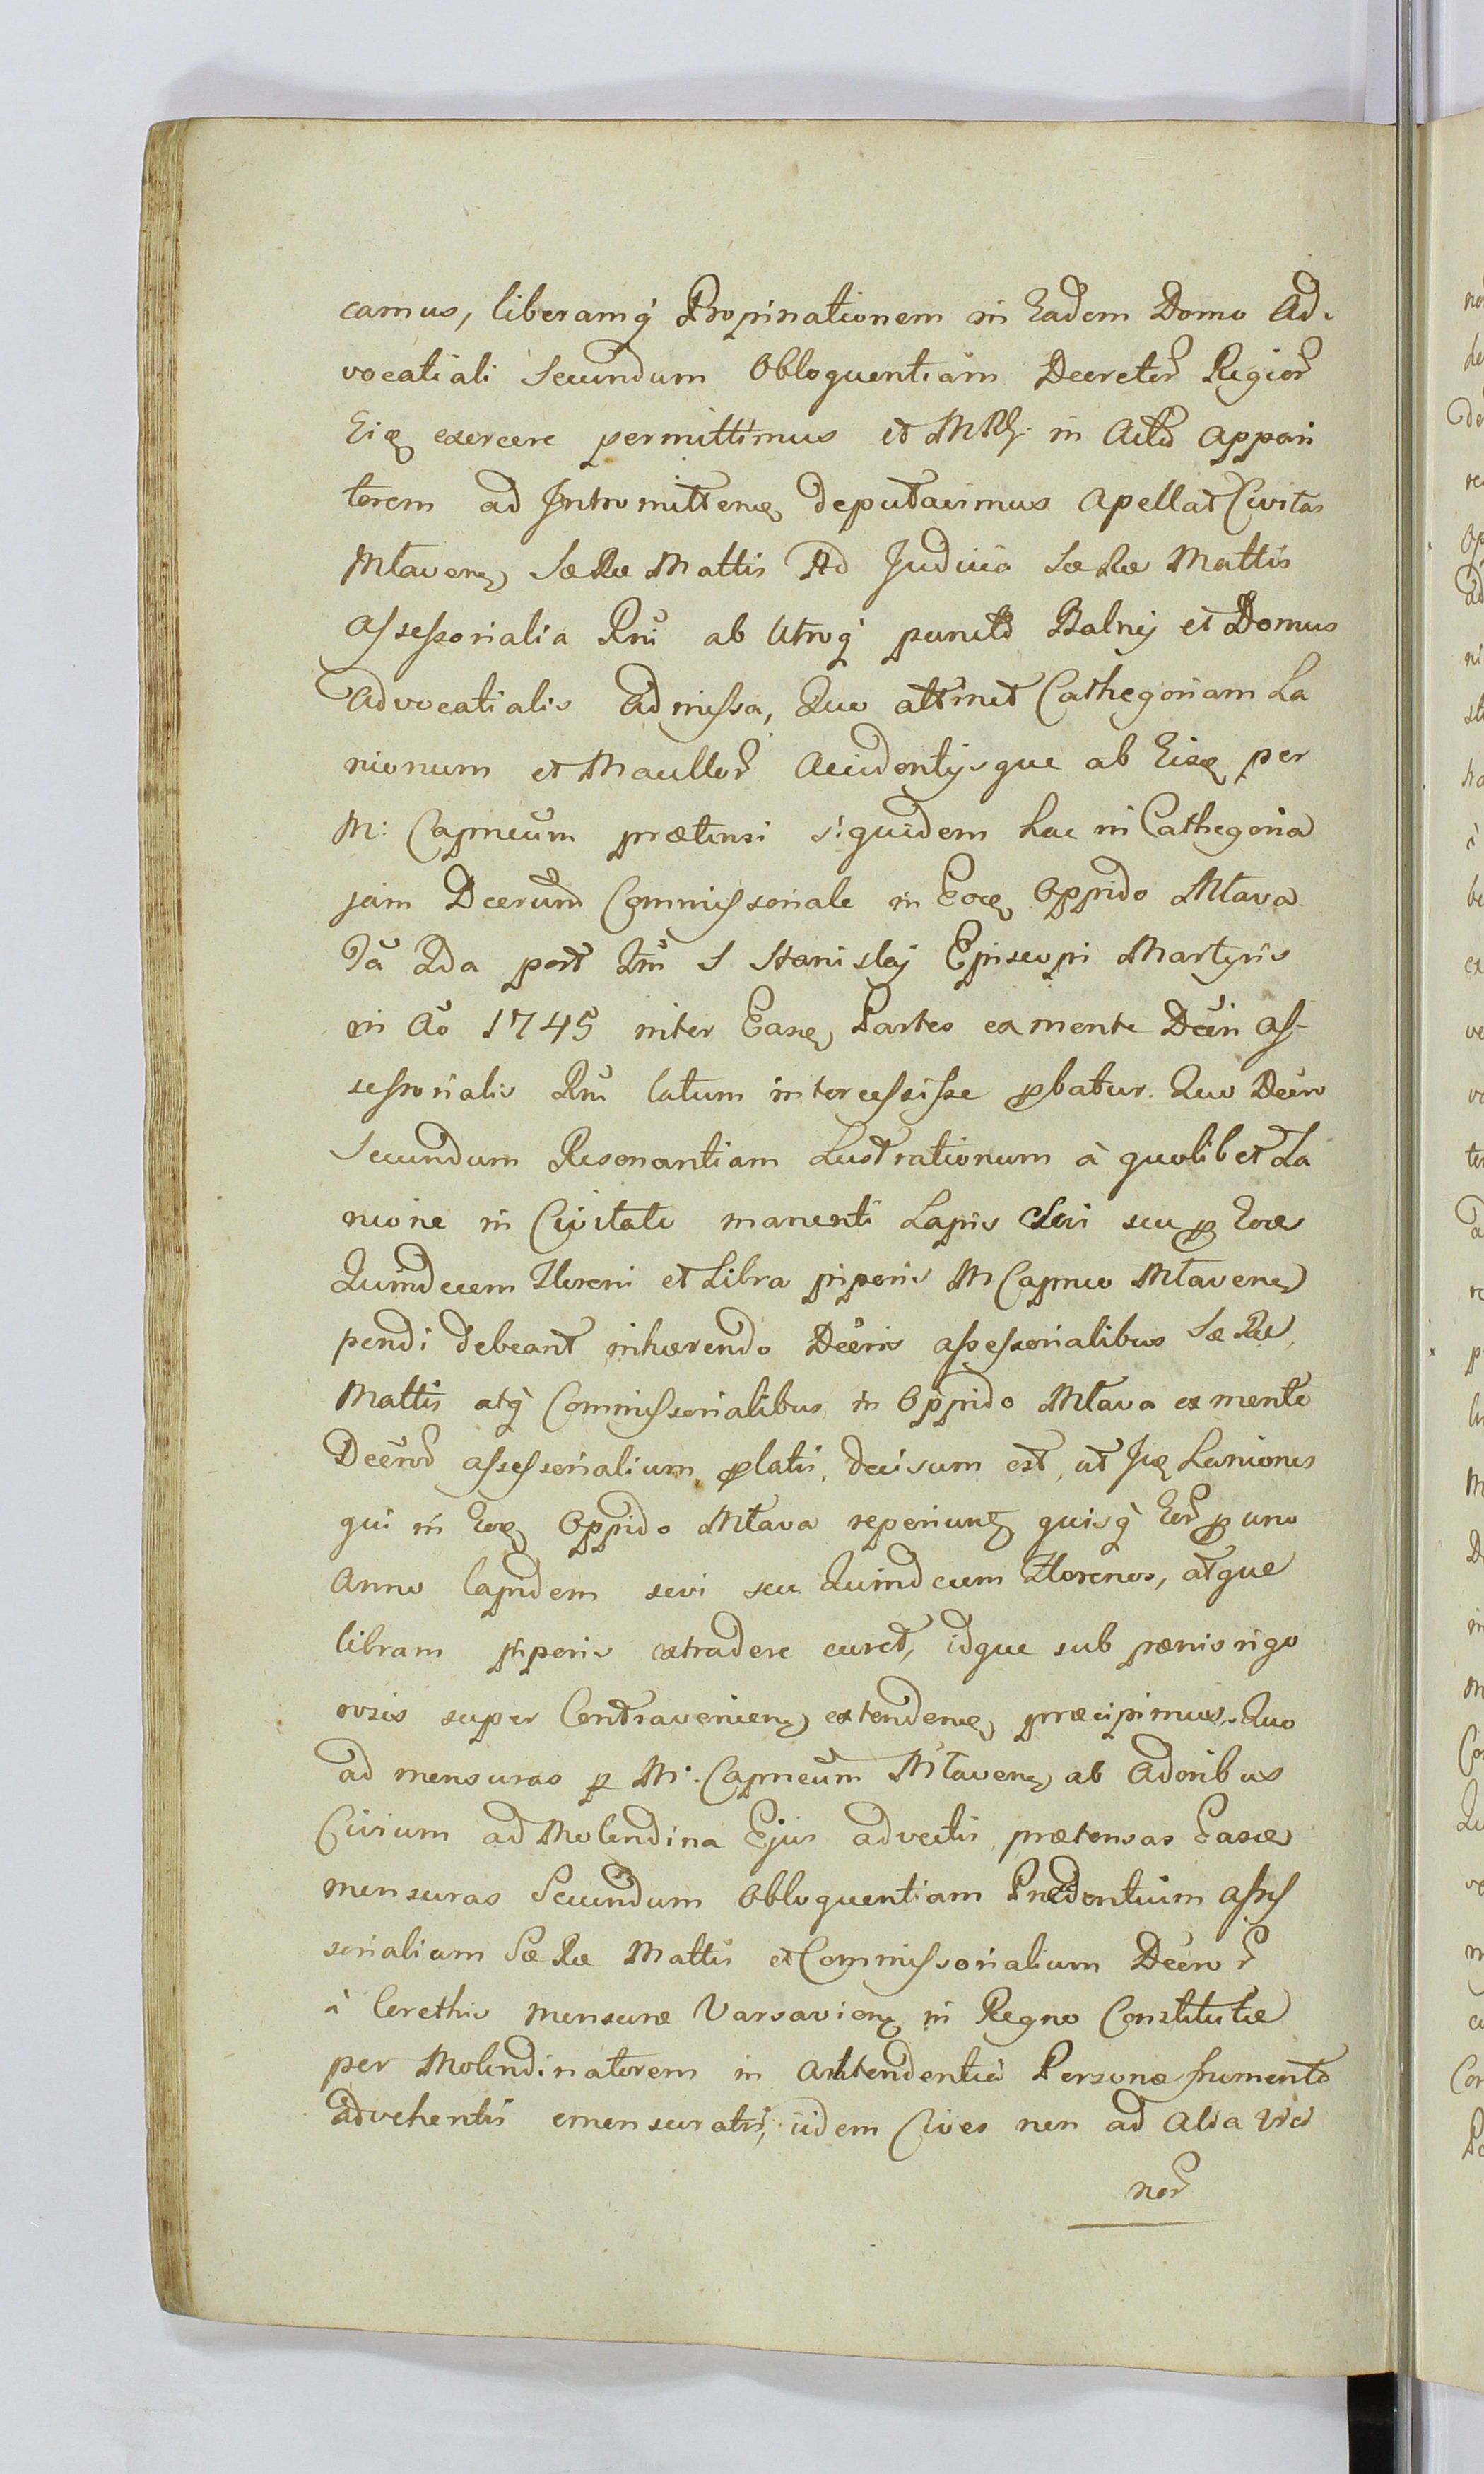 camus, liberamq́ Propinationem in Eadem Domo Ad-
vocatiali Secundum Obloquentiam Decretor Regior
Eiq exercere permittimus et in Actu appari
torem ad Intromitten deputavimus apellat Civitas
Mlaven SæRæ Mattis Ad Judicia SæRæ Mattis
assessorialia Rni ab Utroq́ puncto Balnij et Domus
advocatialis admissa, Quo attinet Cathegoriam La
nionum et Macellor accidentijsque ab Eisq per
M: Capneum prætensi siquidem hac in Cathegoria
jam Decrum Commissoriale in Eoq Oppido Mlava
post S Stanislaj Episcopi Martyris
in Ao 1745 inter Easq Partes ex mente Decri as-
sessorialis Rni latum intercessisse pbatur. Quo Decro
Secundum Resonantiam Lustrationum à quolibet La
nione in Civitate manenti Lapis Sevi seu p Eoq
Quindecem Floreni et Libra piperis M Capneo Mlaven
pendi debeant inhærendo Decris assessorialibus SæRæ
Mattis atq́ Commissorialibus in Oppido Mlava ex mente
Decror assessorialium platis, decisum est, ut Iiq Laniones
qui in Eoq Oppido Mlava reperiunt quisq́ Eor p uno
Anno lapidem sevi seu Quindecem Florenos, atque
libram piperis extradere curet, idque sub pœnis rigo
rosis super Contravenien extenden præcipimus. Quo
ad mensuras p M. Capneum Mlaven ab Adoribus
Civium ad Molendina Ejus advectis prætensas Easq
mensuras Secundum Obloquentiam Præcedentium asses
sorialium SæRæ Mattis et Commissorialium Decror
à Corethis mensuræ Varsavien in Regno Constitutæ
per Molendinatorem in attendentia Personæ frumento
advehentis emensuratis, iidem Cives non ad alia Vici
nor